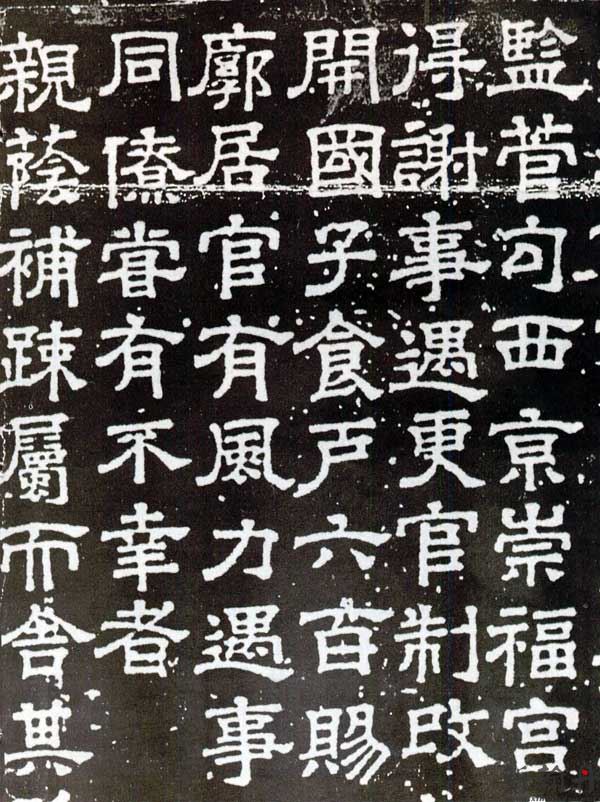 監菅句西亰崇福宫
得謝事遇更官制改
開國子食户六百賜
廓居官有風力遇事
同僚甞有不幸者
親蔭補踈屬而舍其